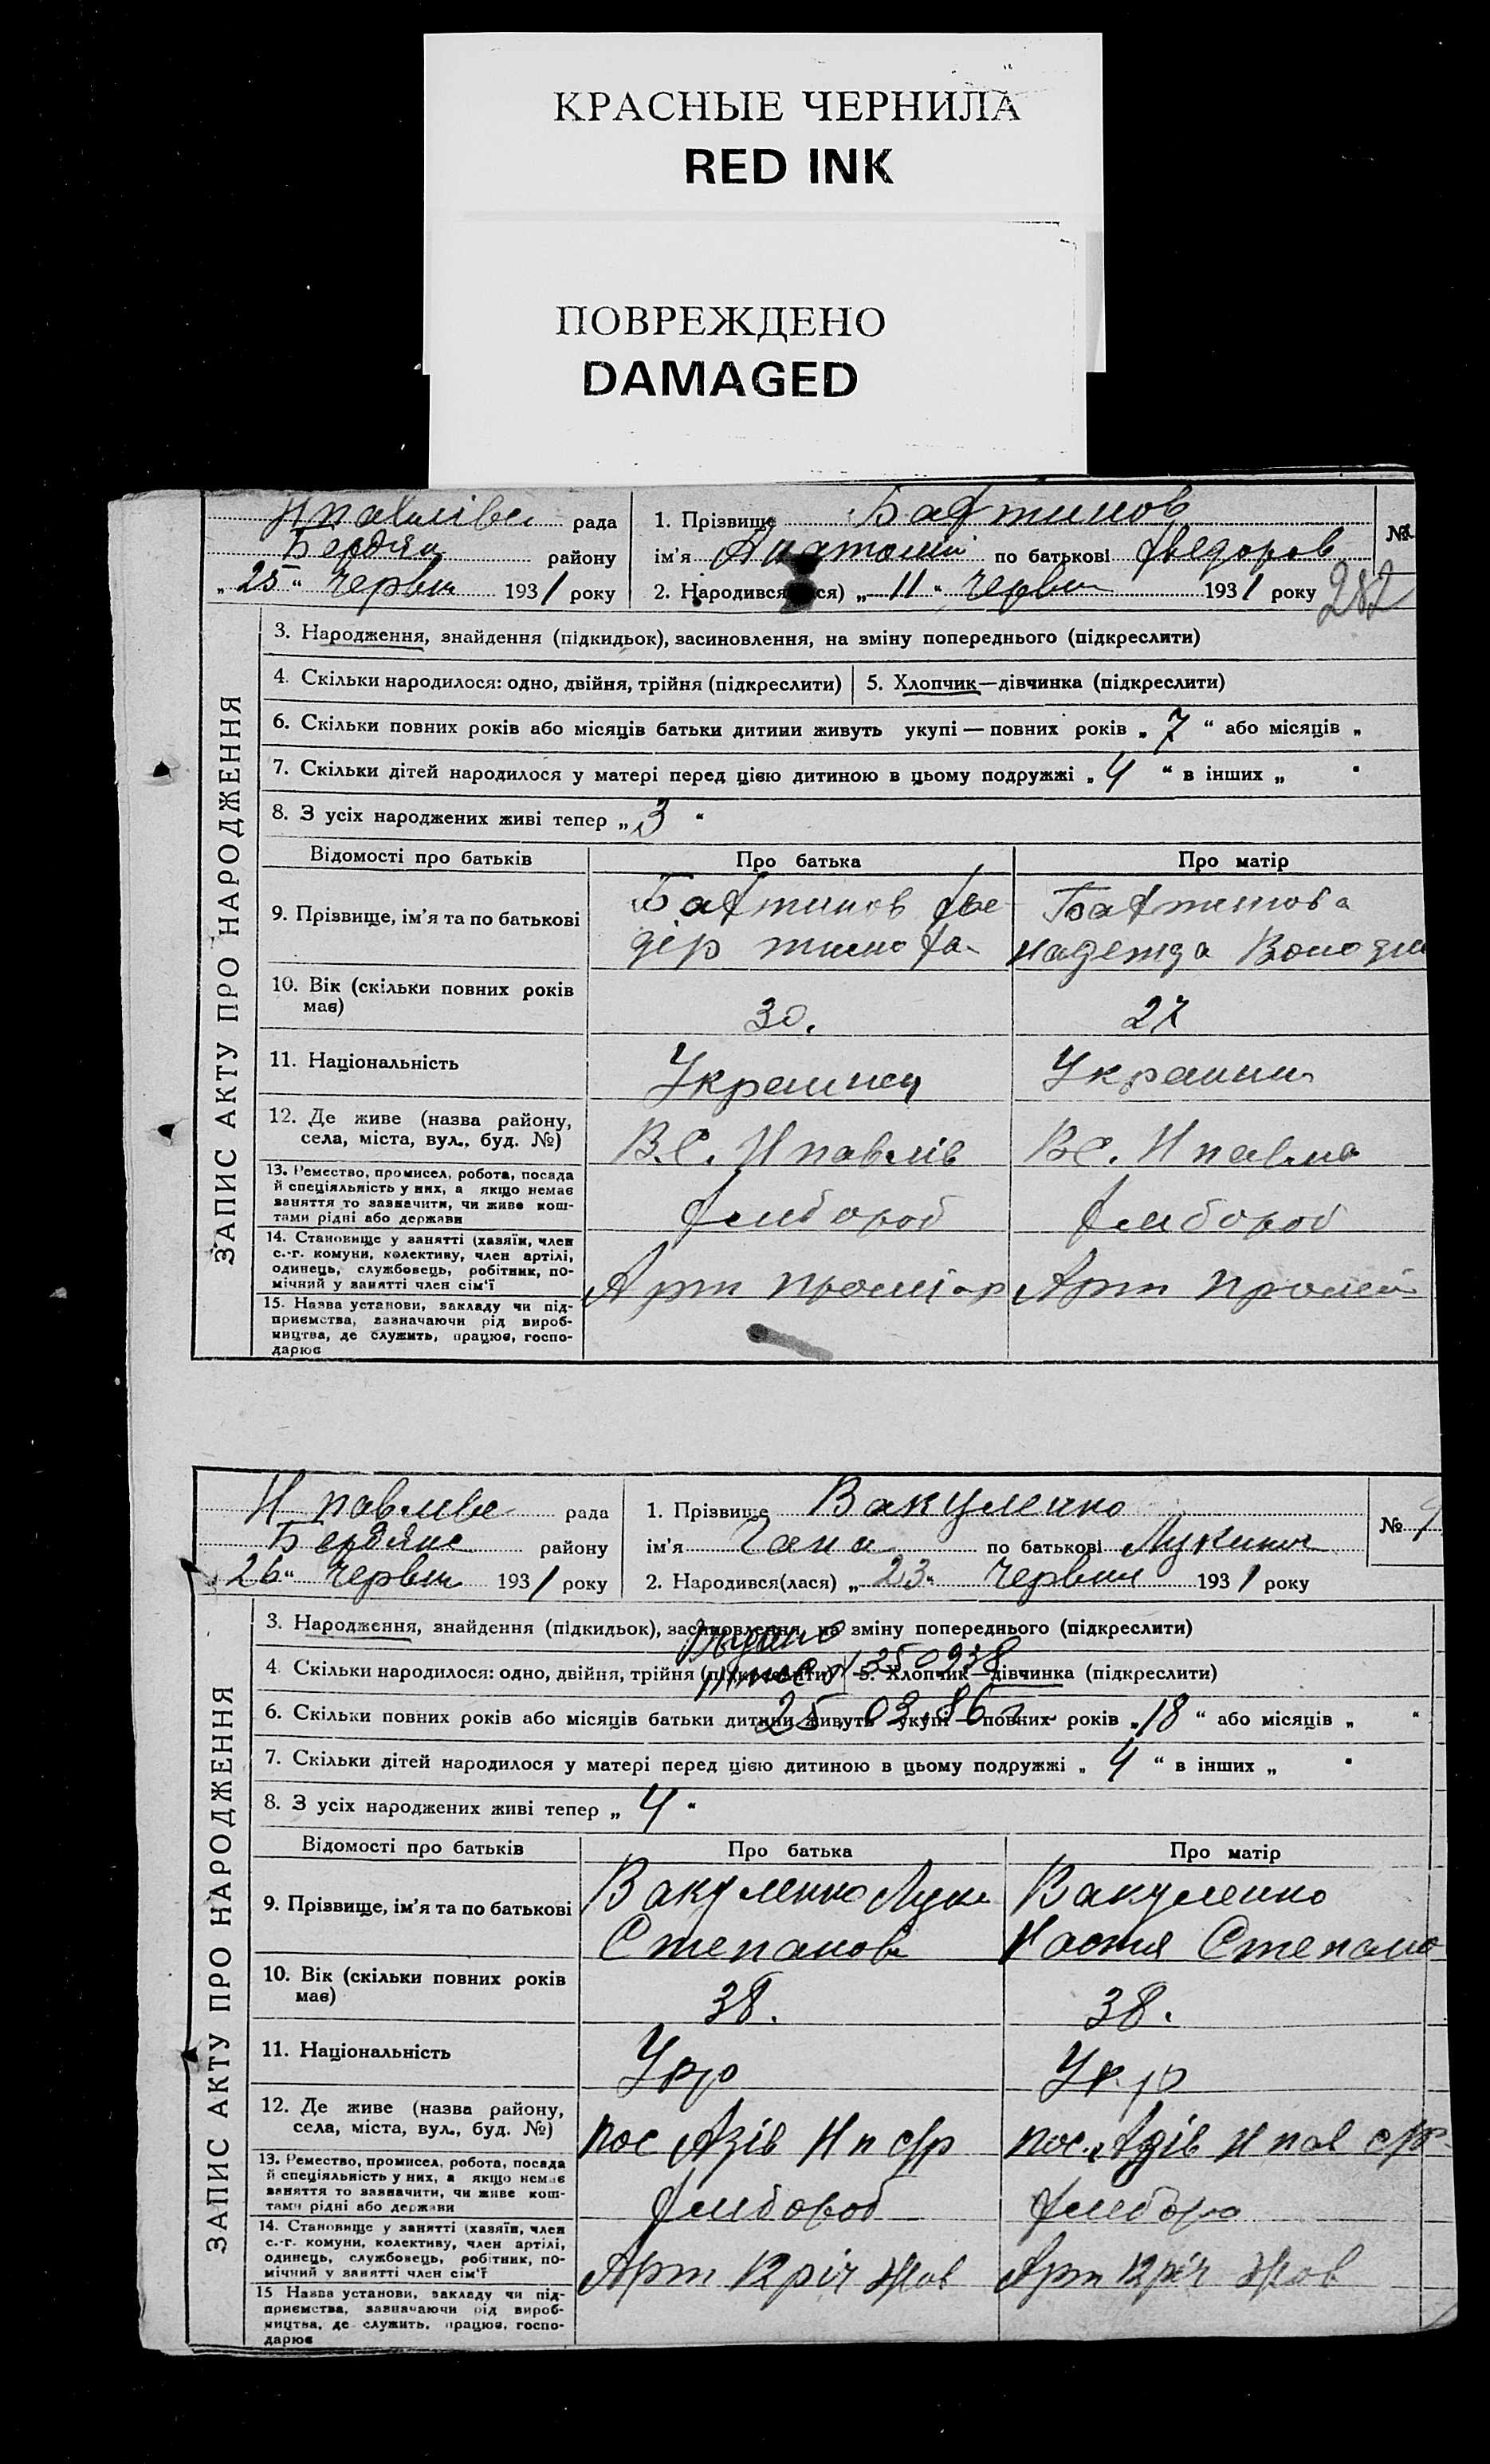 КРАСНЫЕ ЧЕРНИЛА
RED INK
ПОВРЕЖДЕНО
DAMAGED
Нпавлівс рада
Бердян району
„25“ Червня 1931 року
1. Прізвище Бафтинов
ім’я Анатолій по батькові Фведоров
2. Народився(лася) „11“ Червн 1931 року
№
282
ЗАПИС АКТУ ПРО НАРОДЖЕННЯ
3. Народження, знайдення (підкидьок), засиновлення, на зміну попереднього (підкреслити)
4. Скільки народилося: одно, двійня, трійня (підкреслити) 5. Хлопчик—дівчинка (підкреслити)
6. Скільки повних років або місяців батьки дитини живуть укупі — повних років „7“ або місяців „
7. Скільки дітей народилося у матері перед цією дитиною в цьому подружжі „4“ в інших „ “
8. З усіх народжених живі тепер „3“
Відомості про батьків Про батька Про матір
9. Прізвище, ім’я та по батькові
Бафтинов Фве
дір тимофа
Бафтинова
Надежда Володи
10. Вік (скільки повних років має) 30. 27
11. Національність Украинец Украини
12. Де живе (назва району, села, міста, вул., буд. №) В.С. Н павлів ВС. Н павлів
13. Ремество, промисел, робота, посада й спеціяльність у них, а якщо немає заняття то зазначити, чи живе коштами рідні або держави
хлибороб хлибороб
14. Становище у занятті (хазяїн, член с.-г. комуни, колективу, член артілі, одинець, службовець, робітник, помічний у занятті член сім’ї
Арт Арт
15. Назва установи, закладу чи підприємства, зазначаючи рід виробництва, де служить, працює, господарює
Н павлівс рада
Бердянс району
„26“ Червня 1931 року
1. Прізвище Вакуленко
ім’я Гана по батькові Лукинич
2. Народився(лася) „23“ Червня 1931 року
№ 9
ЗАПИС АКТУ ПРО НАРОДЖЕННЯ
3. Народження, знайдення (підкидьок), засиновлення, на зміну попереднього (підкреслити)
Видано
4. Скільки народилося: одно, двійня, трійня (підкреслити) 5. Хлопчик—дівчинка (підкреслити)
350938
25.03.86 г.
6. Скільки повних років або місяців батьки дитини живуть укупі — повних років „18“ або місяців „ “
7. Скільки дітей народилося у матері перед цією дитиною в цьому подружжі „4“ в інших „ “
8. З усіх народжених живі тепер „4“
Відомості про батьків Про батька Про матір
9. Прізвище, ім’я та по батькові
Вакуленко Лука
Степанов
Вакуленко
Настя Степано
10. Вік (скільки повних років має) 38. 38.
11. Національність Укр Укр
12. Де живе (назва району, села, міста, вул., буд. №) пос Азів Н п с/р пос. Азів Н пав с/р
13. Ремество, промисел, робота, посада й спеціяльність у них, а якщо немає заняття то зазначити, чи живе коштами рідні або держави
хлибороб хлиборо
14. Становище у занятті (хазяїн, член с.-г. комуни, колективу, член артілі, одинець, службовець, робітник, помічний у занятті член сім’ї
Арт 12 річ Жов Арт 12 річ Жов
15 Назва установи, закладу чи підприємства, зазначаючи рід виробництва, де служить, працює, господарює